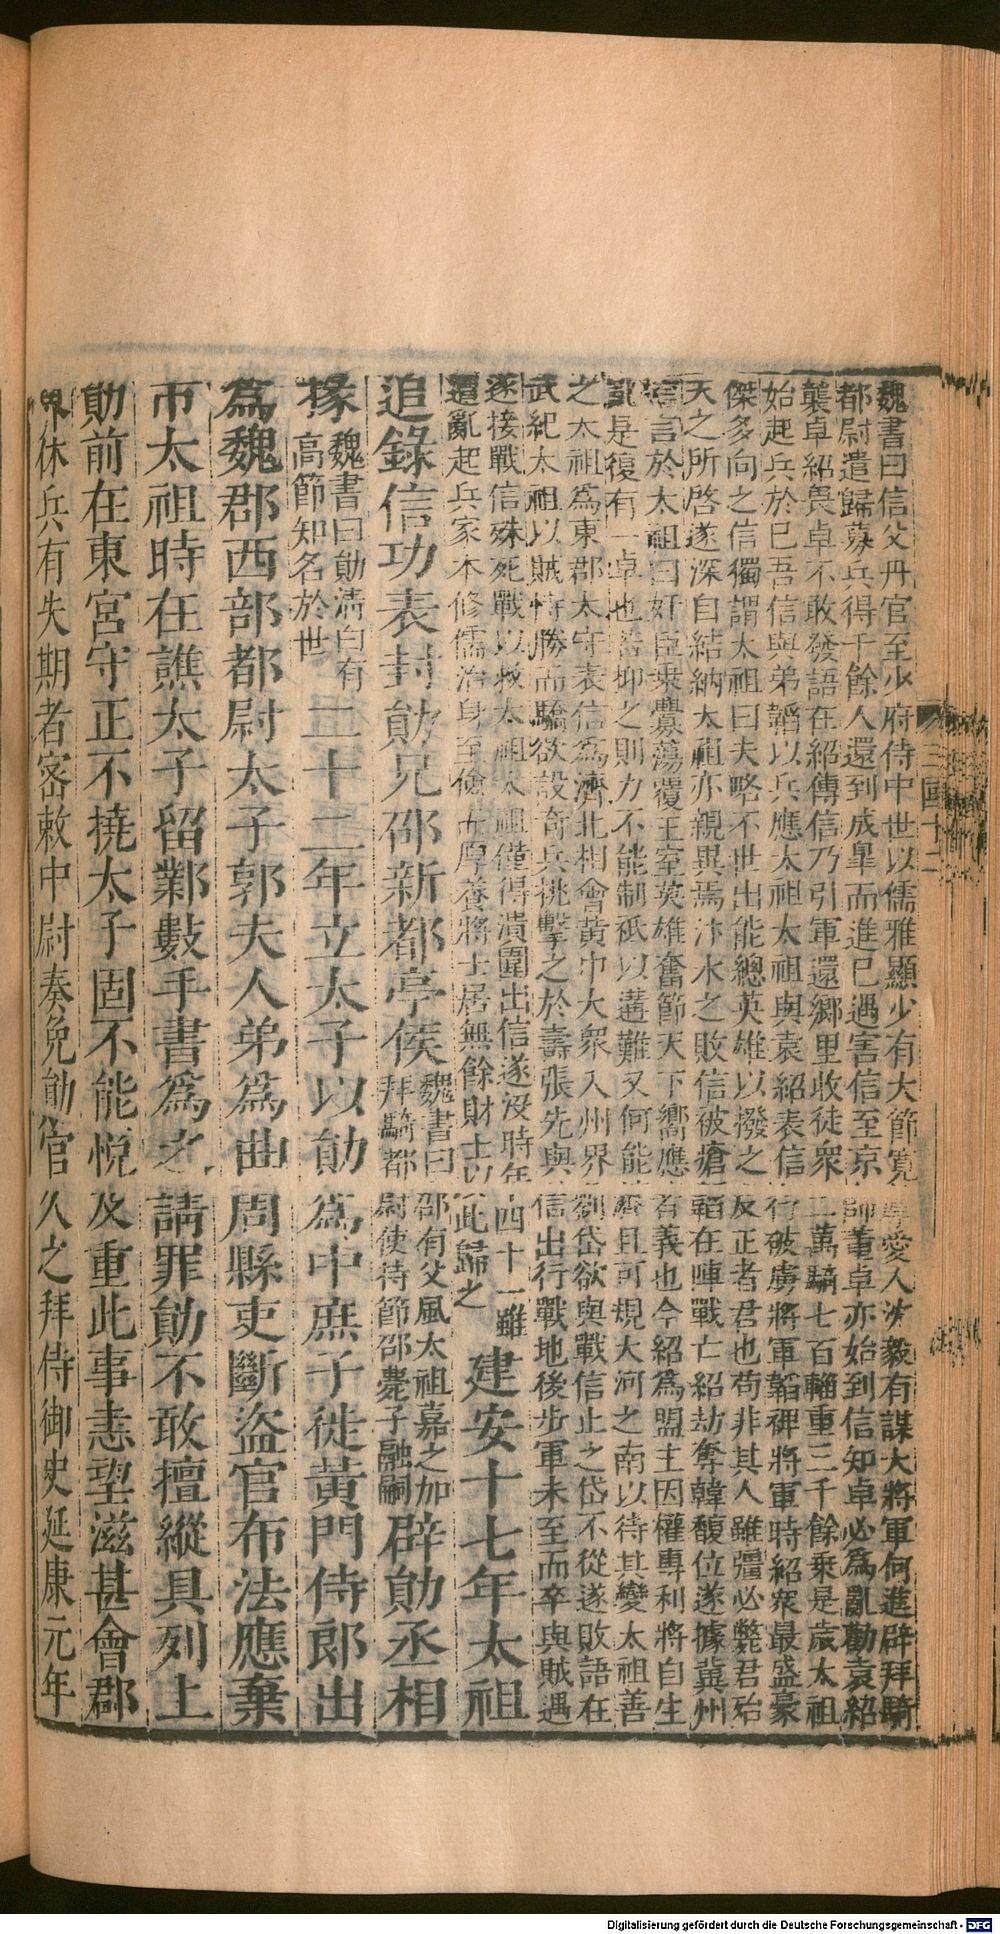 魏書曰信父丹官至少府侍中世以儒雅顯少有大節寬厚愛人沈毅有謀大將軍何進辟拜騎
都尉遣歸募兵得千餘人還到成臯而進已遇害信至京師董卓亦始到信知卓必為亂勸袁紹
襲卓紹畏卓不敢發語在紹傳信乃引軍還鄉里收徒衆二萬騎七百輜重三千餘乗是歲太祖
始起兵於巳吾信與弟韜以兵應太祖太祖與袁紹表信行破虜將軍韜裨將軍時紹衆最盛豪
傑多向之信獨謂太祖曰夫略不世出能總英雄以撥之反正者君也苟非其人雖彊必斃君殆
天之所啓遂深自結納太祖亦親異焉汴水之敗信被瘡韜在陣戰亡紹劫奪韓馥位遂據冀州
信言於太祖曰奸臣乗釁蕩覆王室英雄奮節天下嚮應者義也今紹為盟主因權專利將自生
亂是復有一卓也若抑之則力不能制祇以遘難又何能濟且可規大河之南以待其變太祖善
之太祖為東郡太守表信為濟北相會黃巾大衆入州界劉岱欲與戰信止之岱不從遂敗語在
武紀太祖以賊恃勝而驕欲設奇兵挑擊之於壽張先與信出行戰地後步軍未至而卒與賊遇
遂接戰信殊死戰以救太祖太祖僅得潰圍出信遂没時年四十一雖
遭亂起兵家本修儒治身至儉而厚養將士居無餘財士以此歸之
建安十七年太祖
追錄信功表封勛兄邵新都亭侯
魏書曰邵有父風太祖嘉之加
拜騎都尉使持節邵薨子融嗣
辟勛丞相
掾
魏書曰勛清白有
高節知名於世
二十二年立太子以勛為中庶子徙黃門侍郎出
為魏郡西部都尉太子郭夫人弟為曲周縣吏斷盜官布法應棄
市太祖時在譙太子留鄴數手書為之請罪勛不敢擅縱具列上
勛前在東宮守正不撓太子固不能悅及重此事恚望滋甚會郡
界休兵有失期者宻敕中尉奏免勛官久之拜侍御史延康元年
三國十二
Digitalisierung gefördert durch die Deutsche Forschungsgemeinschaft - DFG